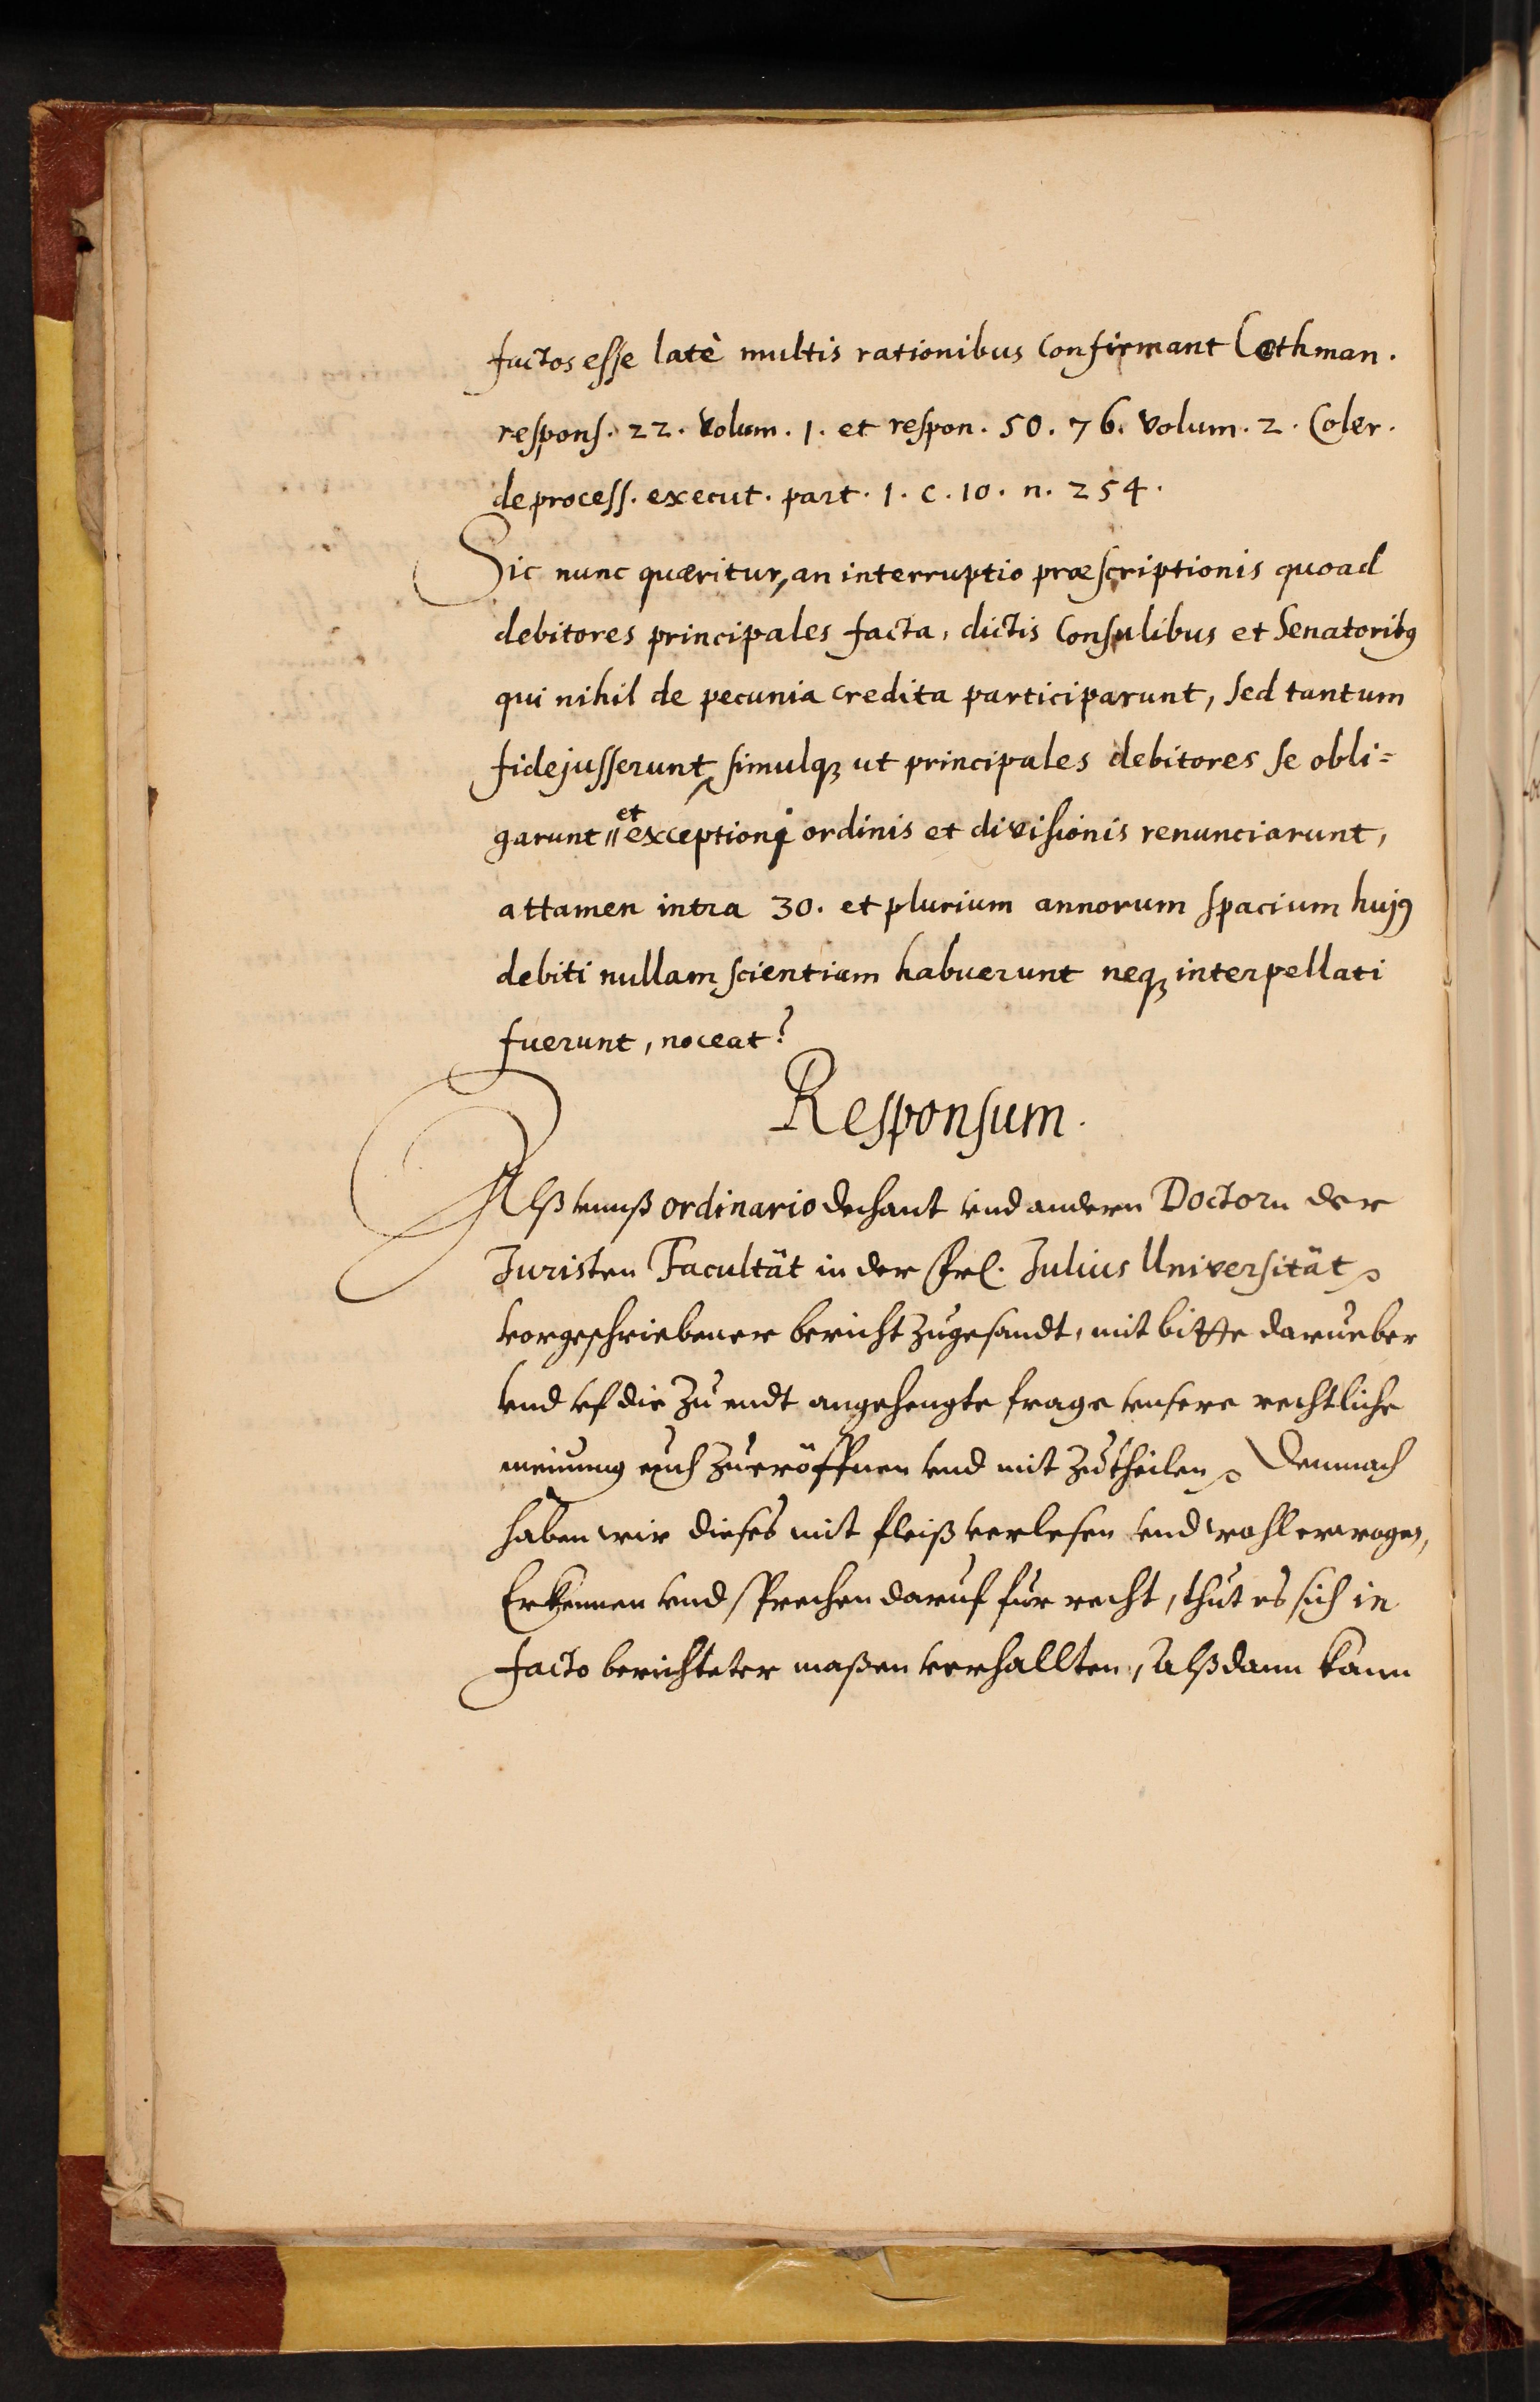 factos esse latè multis rationibus Confirmant Cothman.
respons. 22. Volum. 1. et respon. 50. 76. Volum. 2. Coler.
de process. execut. part. 1. c. 10. n. 254.
Sic nunc quæritur, an interruptio præscriptionis quoad
debitores principales facta, dictis Consulibus et Senatorib9
qui nihil de pecunia credita participarunt, sed tantum
fidejusserunt simulqꝫ ut principales debitores se obli=
garunt et exceptioni ordinis et divisionis renunciarunt,
attamen intra 30. et plurium annorum spacium huj9
debiti nullam scientiam habuerunt neqꝫ interpellati
fuerunt, noceat?
Responsum.
Alß vnnß ordinario dechant vnd andern Doctorn der
Juristen Facultät in der Frl. Julius Universität
vorgeschriebener bericht zugesandt, mit bitte darueber
vnd vf die zu endt angehengte frage vnsere rechtliche
meinung euch zueröffnen vnd mit zutheilen Demnach
haben wir dieses mit fleiß verlesen vnd wohl erwogen,
Erkennen vnd sprechen daruf fur recht, thut es sich in
facto berichteter maßen verhallten, Alßdann kann